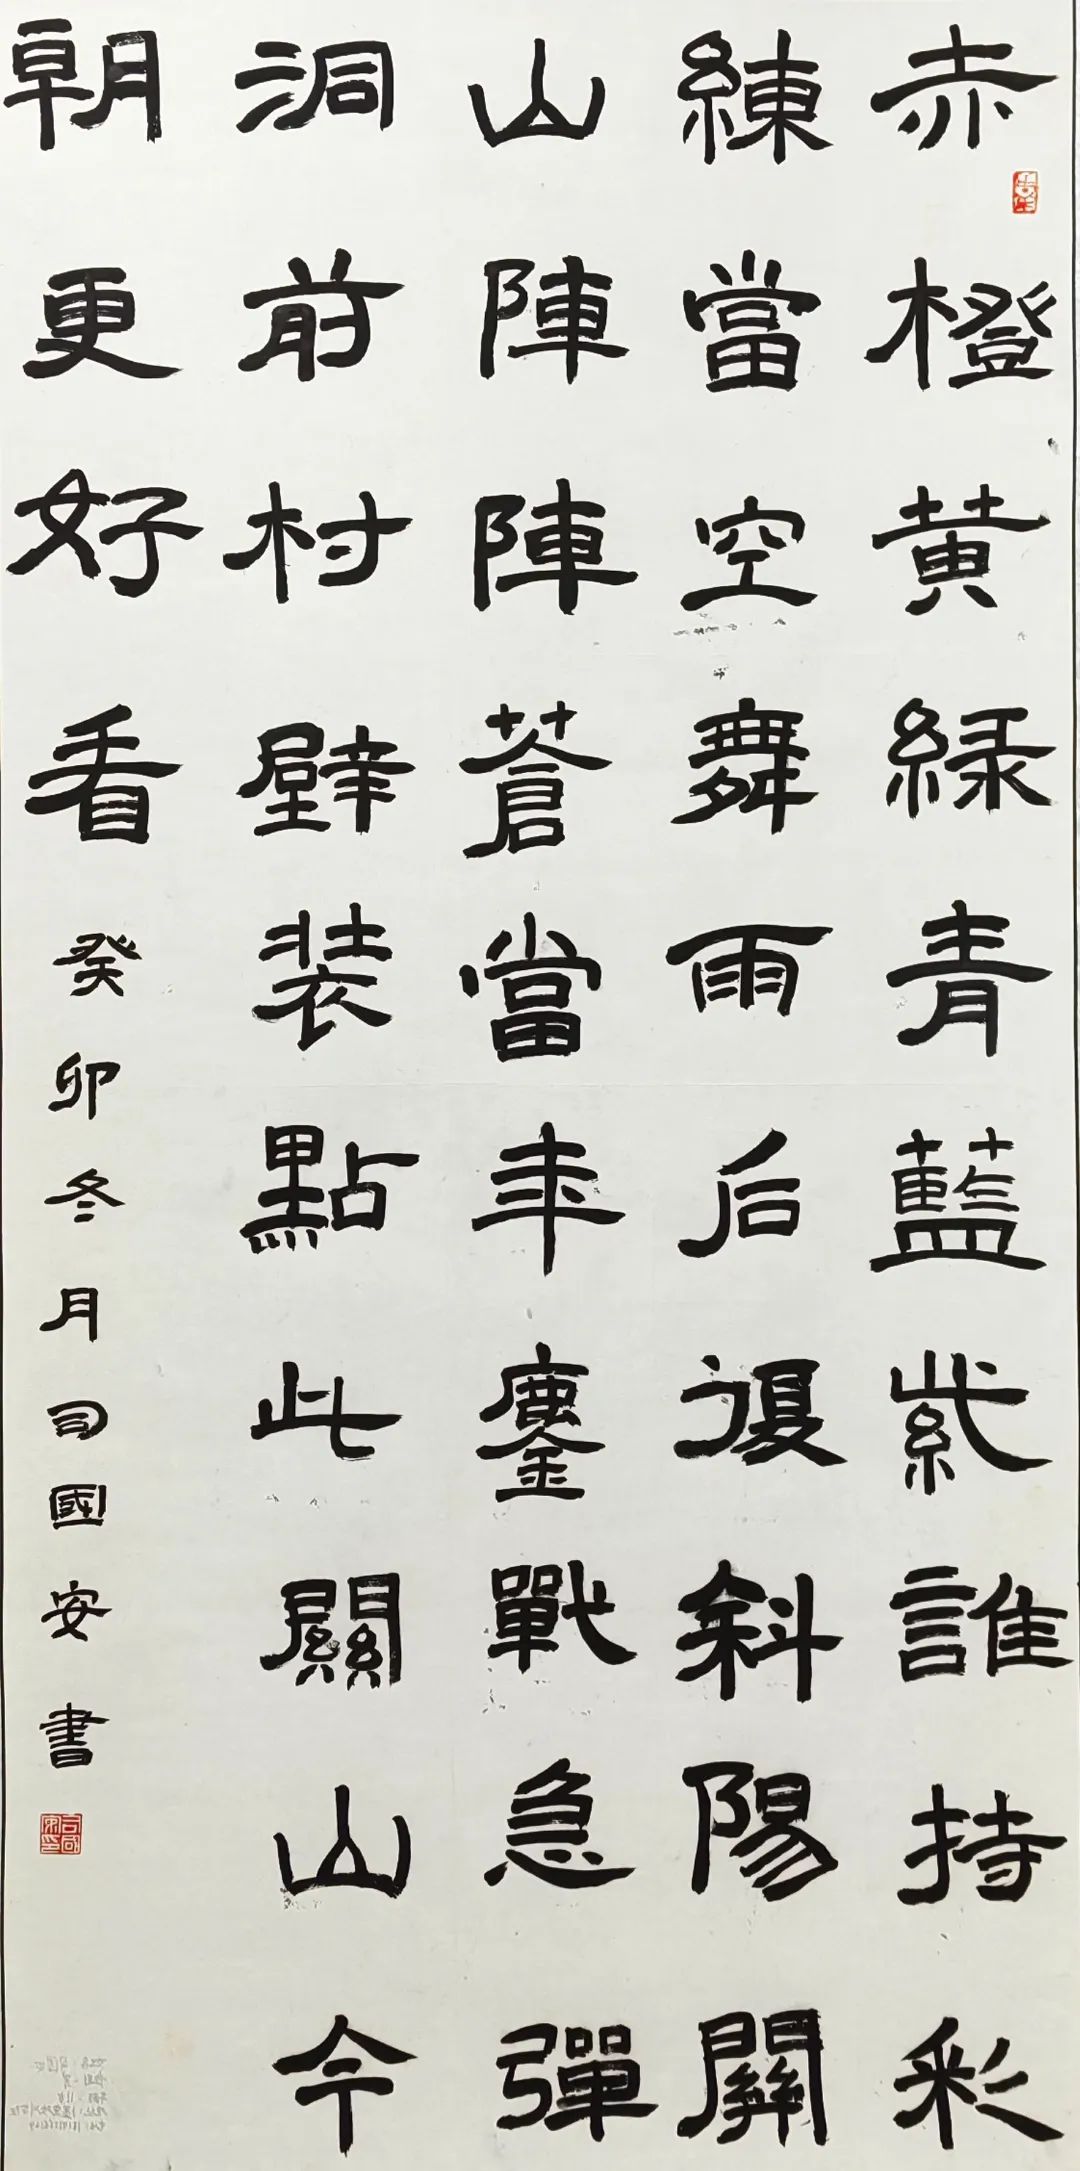 赤橙黄緑青藍紫誰持彩
練當空舞雨后復斜陽關
山陣陣蒼當年鏖戰急彈
洞前村壁装點此關山今
朝更好看
癸卯冬月司國安書
司國安印